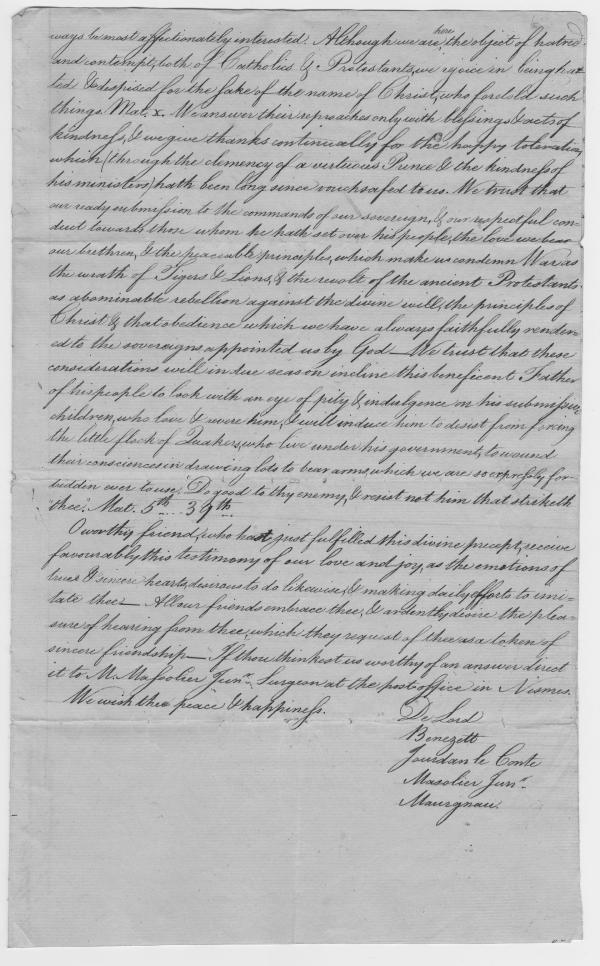 ways be most affectionately interested. Although we are here the object of hatred
and contempt, both of Catholics & Protestants, we rejoice in being ha-
ted & despised for the sake of the name of Christ, who foretold such
things. Mat. x. We answer their reproaches only with blessings, & acts of
kindness, & we give thanks continually for the happy toleration,
which (through the clemency of a virtuous Prince & the kindness of
his ministers) hath been long since vouchsafed to us. We trust that
our ready submission to the commands of our sovereign, & our respectful con-
duct towards those whom he hath set over his people, the love we bear
our brethren, & the peaceable principles, which make us condemn War as
the wrath of Tigers & Lions, & the revolt of the ancient Protestants
as abominable rebellion against the divine will, the principles of
Christ & that obedience which we have always faithfully render-
ed to the sovereigns appointed us by God — We trust that these
considerations will in due season incline this beneficent Father
of his people to look with an eye of pity & indulgence on his submissive
children, who love & revere him, & will induce him to desist from forcing
the little flock of Quakers, who live under his government, to wound
their consciences in drawing lots to bear arms, which we are so expressly for-
bidden ever to use. "Do good to thy enemy, & resist not him that striketh
thee." Mat. 5th 39th.
O worthy friend, who hast just fulfilled this divine precept, receive
favourably this testimony of our love and joy, as the emotions of
true & sincere hearts, desirous to do likewise, & making daily efforts to imi-
tate thee — All our friends embrace thee, & ardently desire the plea-
sure of hearing from thee, which they request of thee as a token of
sincere friendship — If thou thinkest us worthy of an answer direct
it to M. Massolier Junr. Surgeon at the post office in Nismes.
We wish thee peace & happiness.
De Lord
Benezett
Jourdan le Conte
Masolier Junr.
Maurgnau.